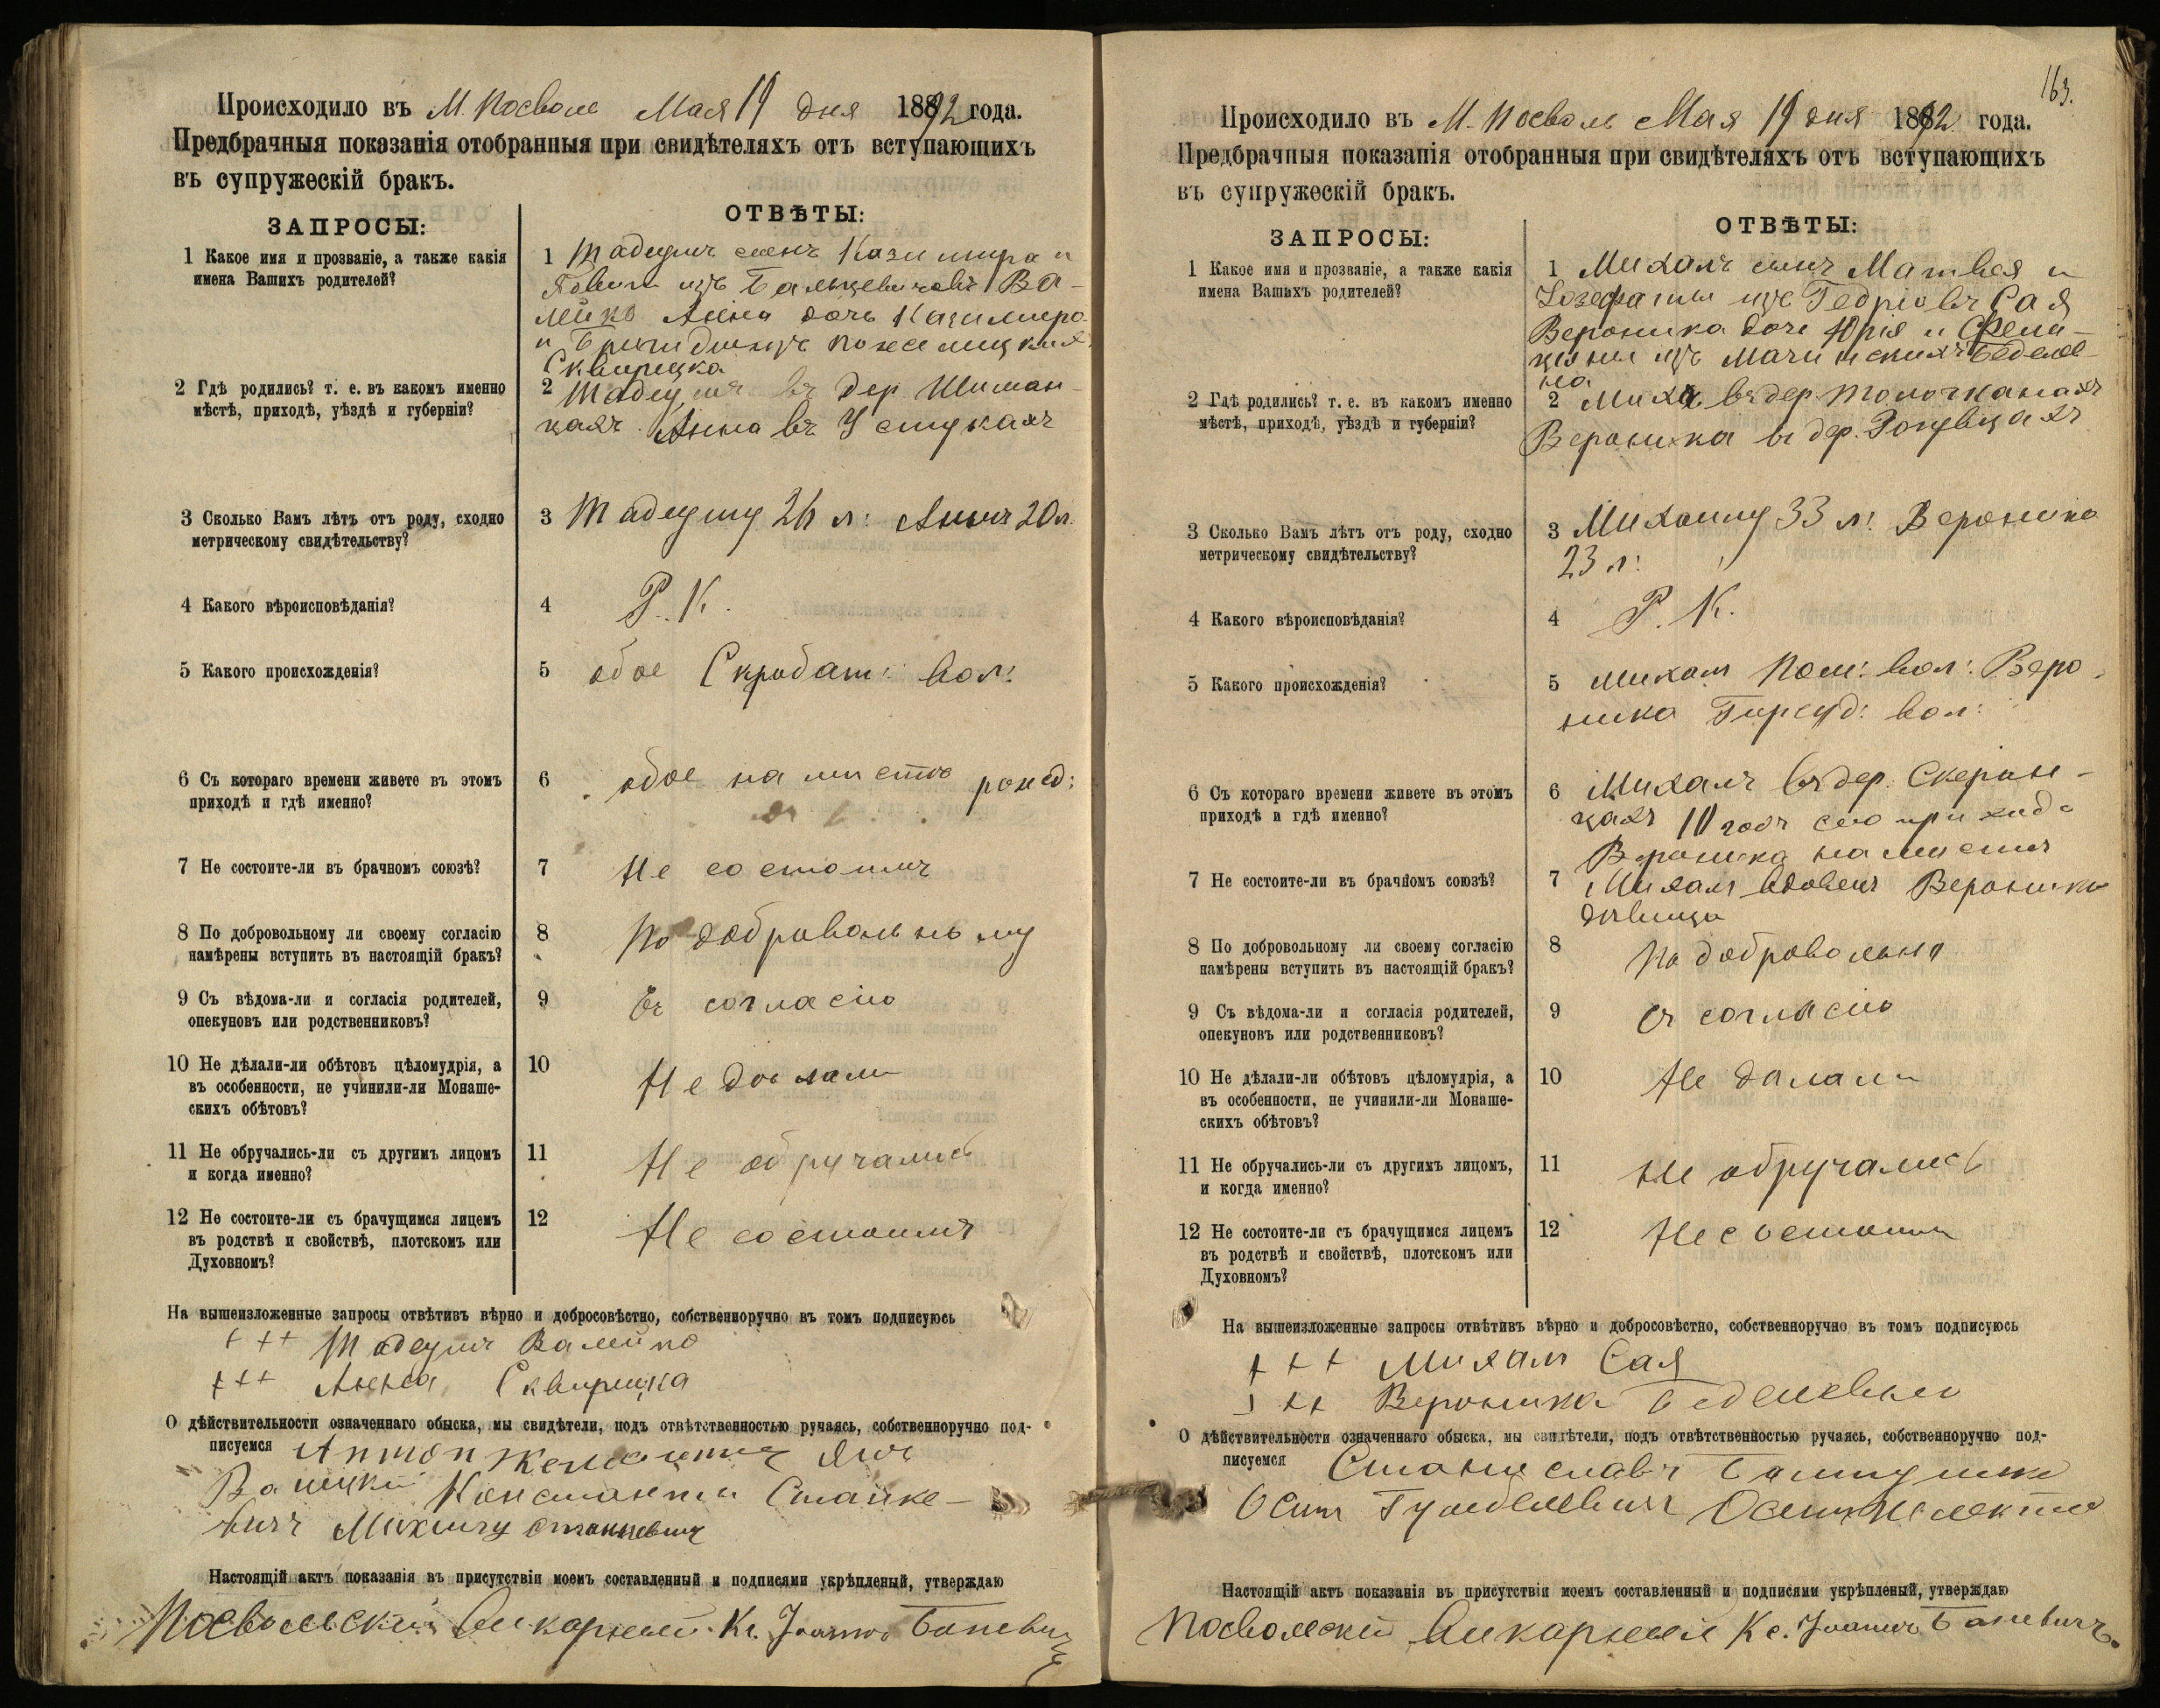 Происходило въ М. Посволе Мая 19 дня 1892 года.
Предбрачныя показанія отобранныя при свидѣтеляхъ отъ вступающихъ
въ супружескій бракъ.
ЗАПРОСЫ:
ОТВѢТЫ:
1 Какое имя и прозваніе, а также какія
имена Вашихъ родителей?
1 Тадеушъ сынъ Казимира и
изъ Бальцевичовъ Ва-
лейко Анна дочь Казимира
и Бригиды изъ
Сквирецка
2 Гдѣ родились? т. е. въ какомъ именно
мѣстѣ, приходѣ, уѣздѣ и губерніи?
2 Тадеушъ въ дер Шиман-
цахъ Анна въ Устукахъ
3 Сколько Вамъ лѣтъ отъ роду, сходно
метрическому свидѣтельству?
3 Тадеушу 26 л: Аннѣ 20 л.
4 Какого вѣроисповѣданія?
4 Р. К.
5 Какого происхожденія?
5 обое Скробот: вол:
6 Съ котораго времени живете въ этомъ
приходѣ и гдѣ именно?
6 обое на мистѣ рожед:
7 Не состоите-ли въ брачномъ союзѣ?
7 Не состоимъ
8 По добровольному ли своему согласію
намѣрены вступить въ настоящій бракъ?
8 По добровольному
9 Съ вѣдома-ли и согласія родителей,
опекуновъ или родственниковъ?
9 Съ согласію
10 Не дѣлали-ли обѣтовъ цѣломудрія, а
въ особенности, не учинили-ли Монаше-
скихъ обѣтовъ?
10 Не дѣлали
11 Не обручались-ли съ другимъ лицомъ
и когда именно?
11 Не обручались
12 Не состоите-ли съ брачущимся лицемъ
въ родствѣ и свойствѣ, плотскомъ или
Духовномъ?
12 Не состоимъ
На вышеизложенные запросы отвѣтивъ вѣрно и добросовѣстно, собственноручно въ томъ подписуюсь
+++ Тадеушъ Валейко
+++ Анна Сквирецка
О дѣйствительности означеннаго обыска, мы свидѣтели, подъ отвѣтственностью ручаясь, собственноручно под-
писуемся Антон
Константи Станке-
вичъ Станкевичъ
Настоящій актъ показанія въ присутствіи моемъ составленный и подписями укрѣпленый, утверждаю
Посвольскій Викарный Кс. Іоаннъ Баневичъ
163.
Происходило въ М. Посволь Мая 19 дня 1892 года.
Предбрачныя показанія отобранныя при свидѣтеляхъ отъ вступающихъ
въ супружескій бракъ.
ЗАПРОСЫ:
ОТВѢТЫ:
1 Какое имя и прозваніе, а также какія
имена Вашихъ родителей?
1 Михалъ сынъ Матвея и
Іозефаты изъ Гедріовъ Сая
Вероника дочь Юрія и
изъ
на
2 Гдѣ родились? т. е. въ какомъ именно
мѣстѣ, приходѣ, уѣздѣ и губерніи?
2 Миха въ дер. Толочканахъ
Вероника в дер.
3 Сколько Вамъ лѣтъ отъ роду, сходно
метрическому свидѣтельству?
3 Михаилу 33 л: Вероника
23 л:
4 Какого вѣроисповѣданія?
4 Р. К.
5 Какого происхожденія?
5 Михалъ Пом: вол: Веро-
ника Гирсуд: вол:
6 Съ котораго времени живете въ этомъ
приходѣ и гдѣ именно?
6 Михалъ въ дер.
цахъ 10 годъ сего прихода
Вероника на мистѣ
7 Не состоите-ли въ брачномъ союзѣ?
7 Михалъ вдовецъ Вероника
дѣвица
8 По добровольному ли своему согласію
намѣрены вступить въ настоящій бракъ?
8 По добровольна
9 Съ вѣдома-ли и согласія родителей,
опекуновъ или родственниковъ?
9 Съ согласію
10 Не дѣлали-ли обѣтовъ цѣломудрія, а
въ особенности, не учинили-ли Монаше-
скихъ обѣтовъ?
10 Не дѣлали
11 Не обручались-ли съ другихъ лицомъ,
и когда именно?
11 Не обручались
12 Не состоите-ли съ брачущимся лицемъ
въ родствѣ и свойствѣ, плотскомъ или
Духовномъ?
12 Не состоим
На вышеизложенные запросы отвѣтивъ вѣрно и добросовѣстно, собственноручно въ томъ подписуюсь
+++ Михалъ Сая
+++ Вероника
О дѣйствительности означеннаго обыска, мы свидѣтели, подъ отвѣтственностью ручаясь, собственноручно под-
писуемся Станиславъ
Осип Осипъ
Настоящій актъ показанія въ присутствіи моемъ составленный и подписями укрѣпленый, утверждаю
Посвольскій Викарный Кс. Іоаннъ Баневичъ